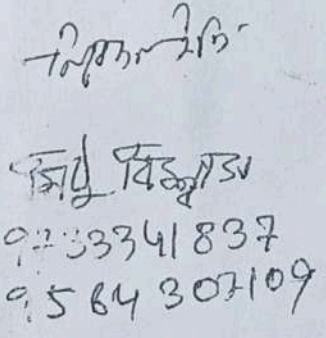 মিঠু বিশ্বাস
9733341837
9564307109